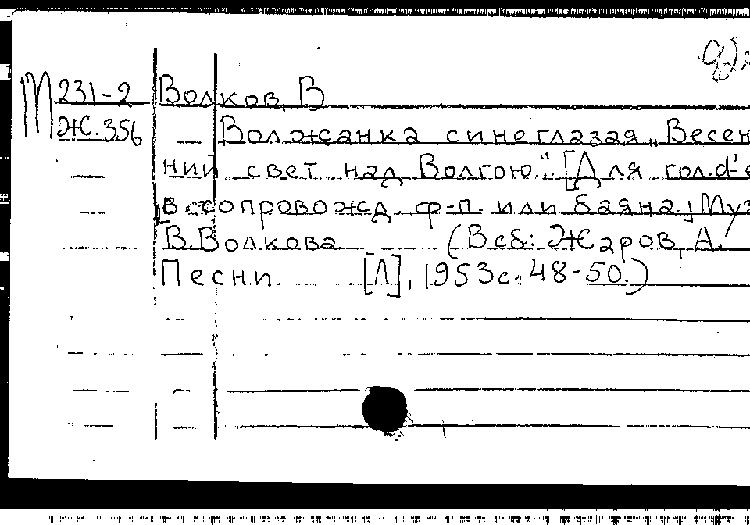 М 231-2 Волков В
Ж.356 Волжанка синеглазая „Весен
ний свет над Волгою." [Для гол. d'e
в сопровожд ф-п. или баяна] Муз
В. Волкова (В сб: Жаров, А.
Песни [Л], 1953 с. 48-50.)